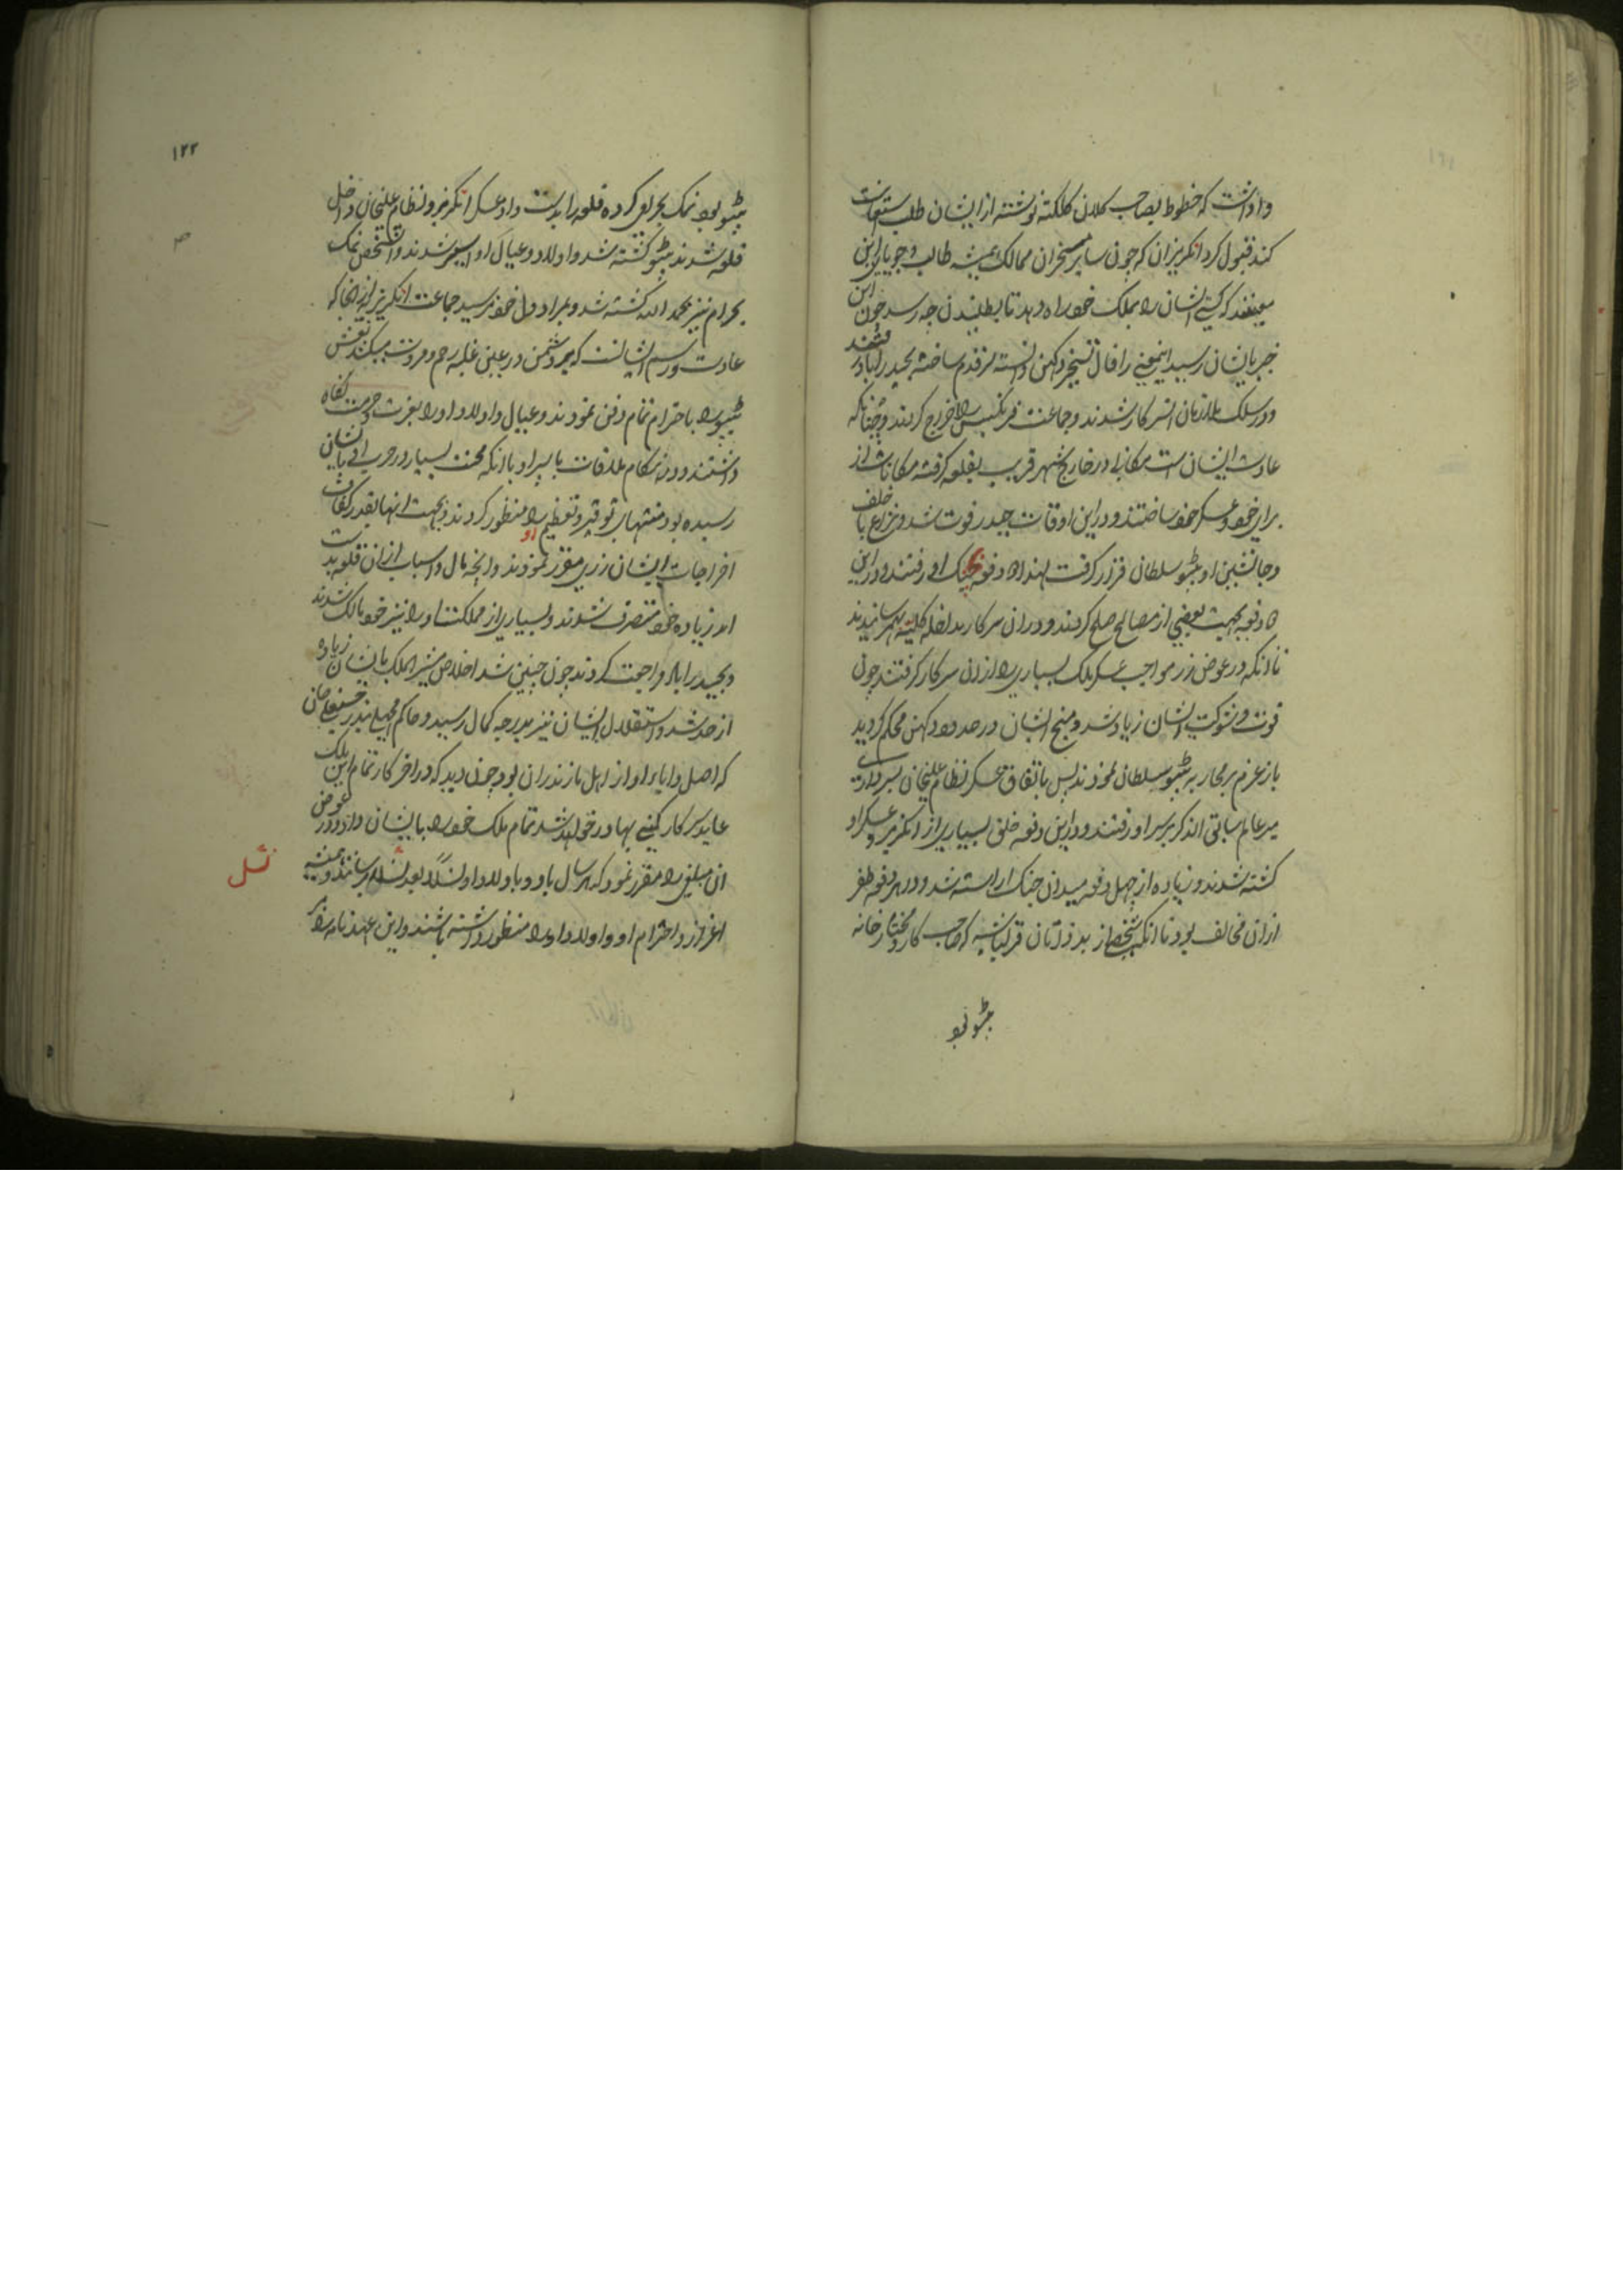 واداشت که خطوط بصاحب کلان کلکته نوشته از ایشان طلب استعانت
کند قبول کرد انکریزان که چون سایر مسخران ممالک همیشه طالب و جویای این
معنیند که کسی ایشان را بملک خود راه دهد تا بطلبیدن چه رسد چون این
خبر بایشان رسید اینمعنی را فال تسخیر دکهن دانسته از قدم ساخته بحیدراباد رفتند
و در سلک ملازمان انسرکار شدند و جماعت فرنکیس را اخراج کردند و چنانکه
عادت ایشان است مکانی در خارج شهر قریب بقلعه کرفته مکانات از
برای خود و عسکر خود ساختند و در این اوقات حیدر فوت شد و نزاع با خلف
و جانشین او تیپو سلطان قرار کرفت لهذا دفعه بجنک او رفتند و در این
دفعه بجهت بعضی از مصالح صلح کردند و در ان سرکار مداخله کلیته بهمرسانیدند
تا انکه در عوض زر مواجب عسکر ملک بسیاری را از ان سرکار کرفتند چون
قوت و شوکت ایشان زیاد شد و میخ ایشان در حدود دکهن محکم کردید
باز عزم بر محاربه تیپو سلطان نمودند پس باتفاق عسکر نظام علیخان بسرداری
میر عالم سابق الذکر بر سر او رفتند و در این دفعه خلق بسیاری از انکریز و عسکر او
کشته شدند و زیاده از چهل دفعه میدان جنک اراسته شد و در هر دفعه ظفر
از ان مخالف بود تا انکه شخصی از بدذاتان قزلباشیه که صاحب کار و مختار خانه
تیپو بود
۱۲۲
تیپو بود نمک بحرامی کرده قلعه را بدست داد عسکر انکریز و نظام علیخان داخل
قلعه شدند تیپو کشته شد و اولاد و عیال او اسیر شدند و انشخص نمک
بحرام نیز بحمد الله کشته شد و بمراد دل خود نرسید جماعت انکریز از انجا که
عادت و رسم ایشانست که بر دشمن در عین غلبه رحم و مروت میکنند نعش
تیپو را باحترام تمام دفن نمودند و عیال و اولاد او را بعزت و حرمت نکاه
داشتند و در هنکام ملاقات با پسر او با انکه محنت بسیار در حرب او بایشان
رسیده بود منتهای توقیر و تعظیم او را منظور کردند و بجهت انها بقدر کفاف
اخراجات ایشان زری مقرر نمودند و انچه مال و اسباب از ان قلعه بدست
امد زیاده خود متصرف شدند و بسیاری از مملکت او را نیز خود مالک شدند
و بحیدراباد مراجعت کردند چون چنین شد اخلاص مشیر الملک بایشان زیاده
از حد شد و استقلال ایشان نیز بدرجه کمال رسید و حاکم مچهلی بندر حسینعلیخان
که اصل و ابای او از اهل مازندران بود چون دید که در اخر کار تمام این ملک
عاید سرکار کمپنی بهادر خواهد شد تمام ملک خود را بایشان داد و در عوض
ان مبلغی را مقرر نمود که هر سال باو و باولاد او نسلاً بعد نسل برسانند و همیشه
نسل
اعزاز و احترام او و اولاد او را منظور داشته باشند و این عهدنامه را